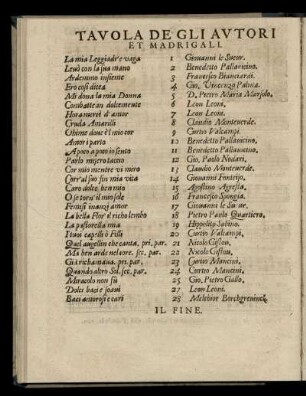 TAVOLA DE GLI AVTORI
ET MADRIGALI.
La mia Leggiadr'e vaga 1 Giovanni le Sueur.
Levò con la sua mano 2 Benedetto Pallavicino.
Ardemmo insieme 3 Francesco Bianciardi.
Ero così detta 4 Gio. Vincenzo Palma.
Mi donò la mia Donna 5 D. Pietro Maria Marsolo.
Combattean dolcemente 6 Leon Leoni.
Hora 7 Leon Leoni.
Cruda Amarilli 8 Claudio Monteverde.
Ohime dunc'è'l mio cor 9 Curtio Valcampi.
Amor i parto 10 Benedetto Pallavicino.
A poco a poco io sento 11 Benedetto Pallavicino.
Parlo misero taccio 12 Gio. Paolo Nodari.
Cor mio mentre vi miro 13 Claudio Monteverde.
Corr'al suo fin mia vita 14 Giovanni Fonteijo.
Caro dolce ben mio 15 Agostino Agresta.
O se torna'il mio sole 16 Francesco Spongia.
Fuggi 17 Giovanni le Sueur.
La bella Flor' 18 Pietro Paolo Quartiero.
La pastorella mia 19 Hippolito Sabino.
I tuoi capelli ò Filli 20 Curtio Valcampi.
Quel augellin che canta. pri. par. 21 Nicolo Gistou.
Ma ben arde nel core. sec. par. 22 Nicolo Gistou.
Già richiamava. pri. par. 23 Curtio Mancini.
Quando altro Sol. sec. par. 24 Curtio Mancini.
Miracolo non fù 25 Gio. Pietro Gallo.
Dolci baci e soavi 27 Leon Leoni.
Baci amorosi e cari 28 Melchior Borchgrevinck.
IL FINE.